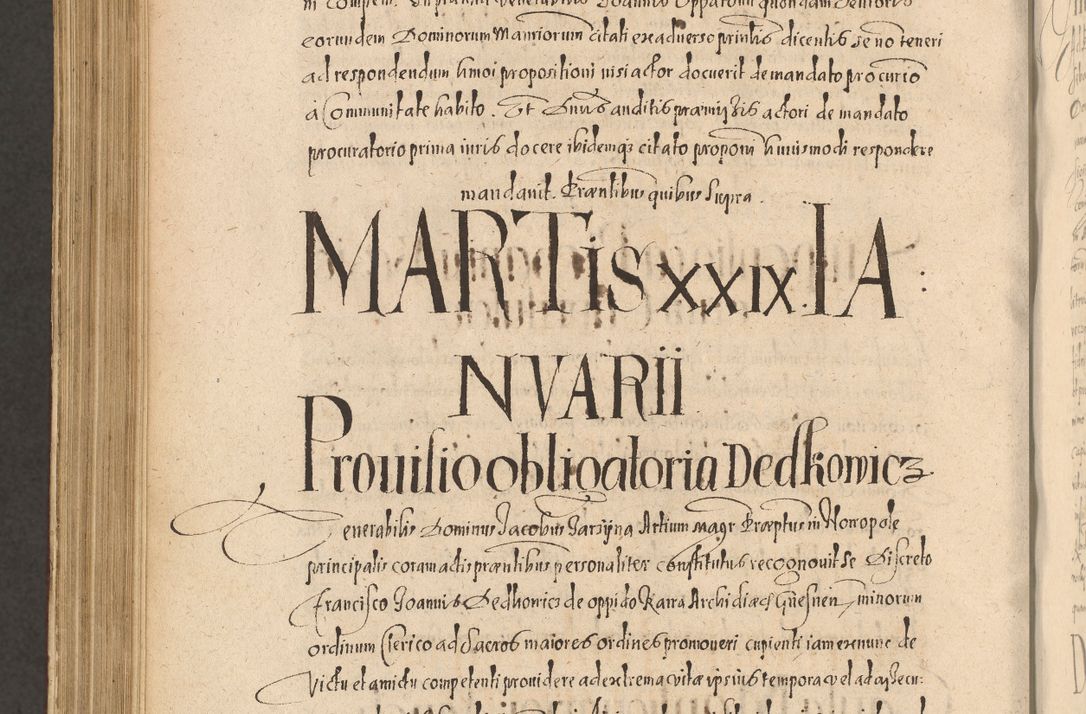 in Compem. Inprannti Venerabilis Joannis Opparowi quondam Cenforis
eorundem Dominorum Manriorum citati exadverso prinlis dicentis se no teneri
ad respondendum hmoi propositioni nisi actor docuerit de mandato procurio
à Communitate habito. Et Dnus auditis præmissis actori de mandato
procuratorio prima iuris docere ibidemq citato propom huiusmodi respondere
mandavit. Præntibus quibus supra.
MARTIS XXIX. IA:
NVARII
Prouisio obligatoria Dedkowicz
Venerabilis Dominus Jacobus Jarzyna Artium Magr Præptus in Nowopole
principalis coram actis præntibus personaliter constitutus recognovit se Discreto
Francisco Joannis Dedkowicz de oppido Karra Archidiæc Gnesnen minorum
ordinum Clerico ad Sacros maiores ordines promoveri cupienti iam exnunc de
Victu et amictu competenti providere ad extrema vitæ ipsius tempora vel ad assecu: